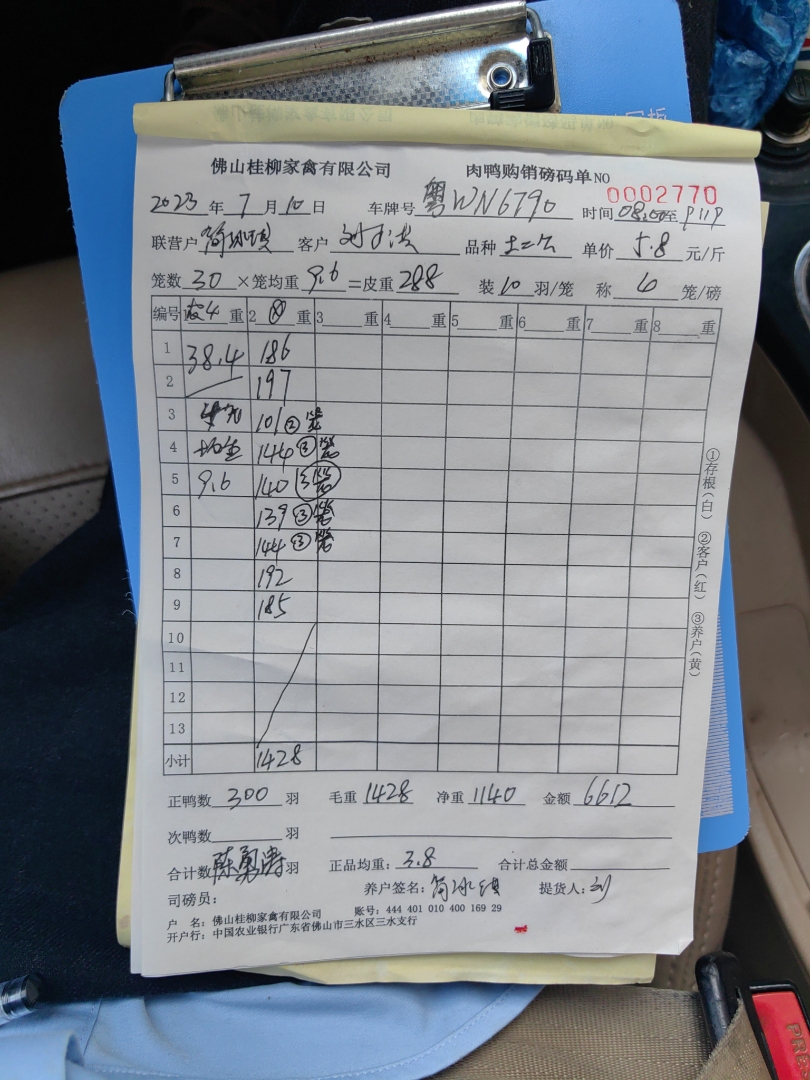 佛山桂柳家禽有限公司 肉鸭购销磅码单 NO 0002770
2023 年 7 月 10 日 车牌号 粤WN6790 时间 08:00至 9:17
联营户 客户 品种 单价 5.8 元/斤
笼数 30 ×笼均重 9.6 =皮重 288 装 10 羽/笼 称 笼/磅
编号 皮4 重 2 重 3 重 4 重 5 重 6 重 7 重 8 重
1 38.4 186
2 197
3 101 ②
4 144 ③
5 9.6 140 3
6 139 ③
7 144 ③
8 192
9 185
10
11
12
13
小计 1428
①存根(白) ②客户(红) ③养户(黄)
正鸭数 300 羽 毛重 1428 净重 1140 金额 6612
次鸭数 羽
合计数 羽 正品均重: 3.8 合计总金额
司磅员: 养户签名: 提货人: 刘
户 名: 佛山桂柳家禽有限公司 账号: 444 401 010 400 169 29
开户行: 中国农业银行广东省佛山市三水区三水支行